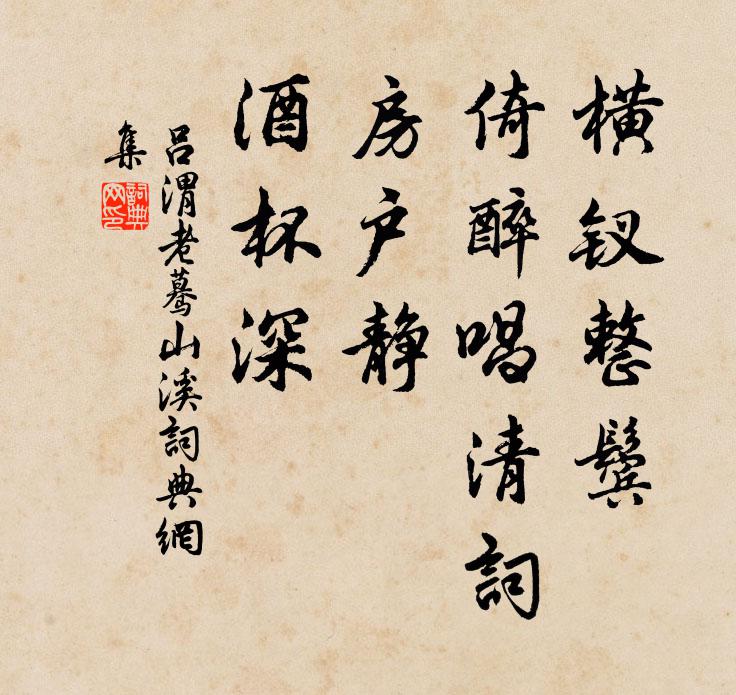 横钗整鬓
倚醉唱清詞
房户静
酒杯深
吕渭老蓦山溪詞典網
集
詞典網印